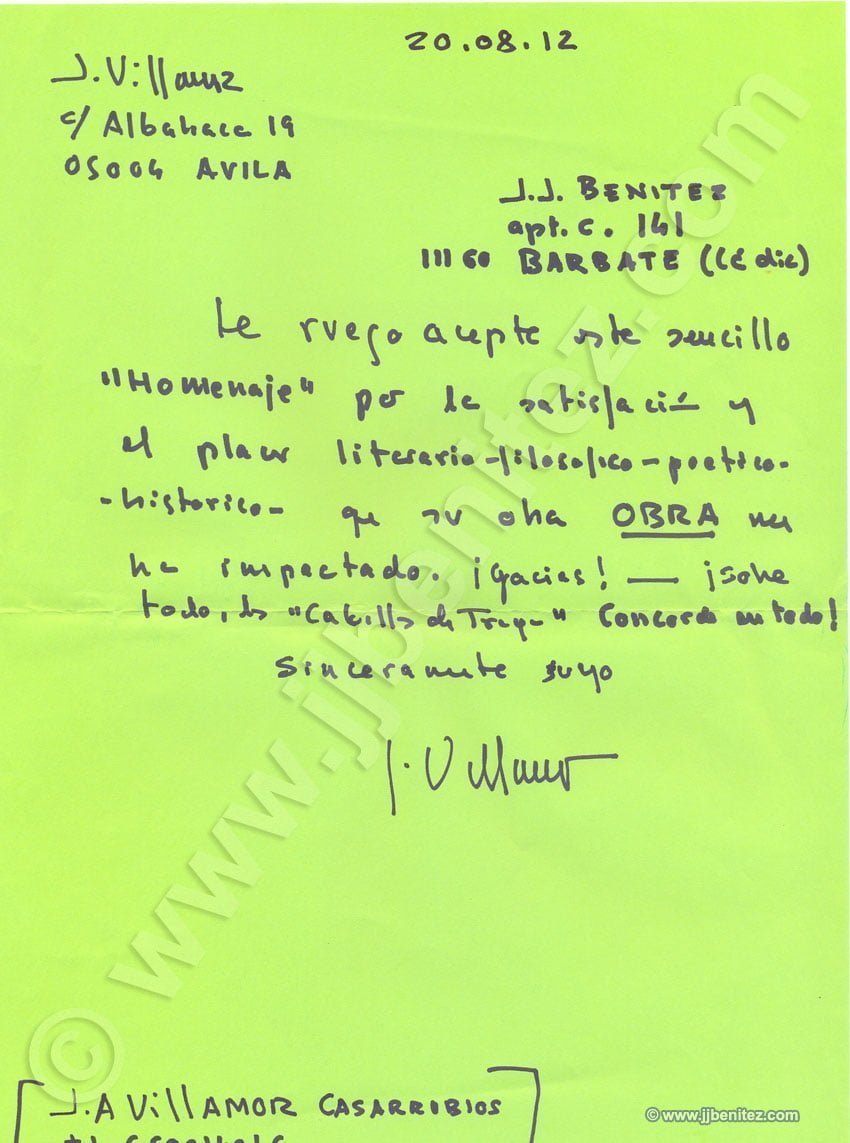 20.08.12
J. Villamor
c/ Albahaca 19
05004 AVILA
J.J. BENITEZ
apt. c. 141
11160 BARBATE (Cádiz)
Le ruego acepte este sencillo
"Homenaje" por la satisfación y
el placer literario-filosofico-poetico-
-historico- que su obra OBRA me
ha impactado. ¡Gacias! — ¡sobre
todo, los "Caballos de Troya" Concordo en todo!
Sinceramente suyo
J. Villamor
J.A VillAMOR CASARRUBIOS
© www.jjbenitez.com
© www.jjbenitez.com